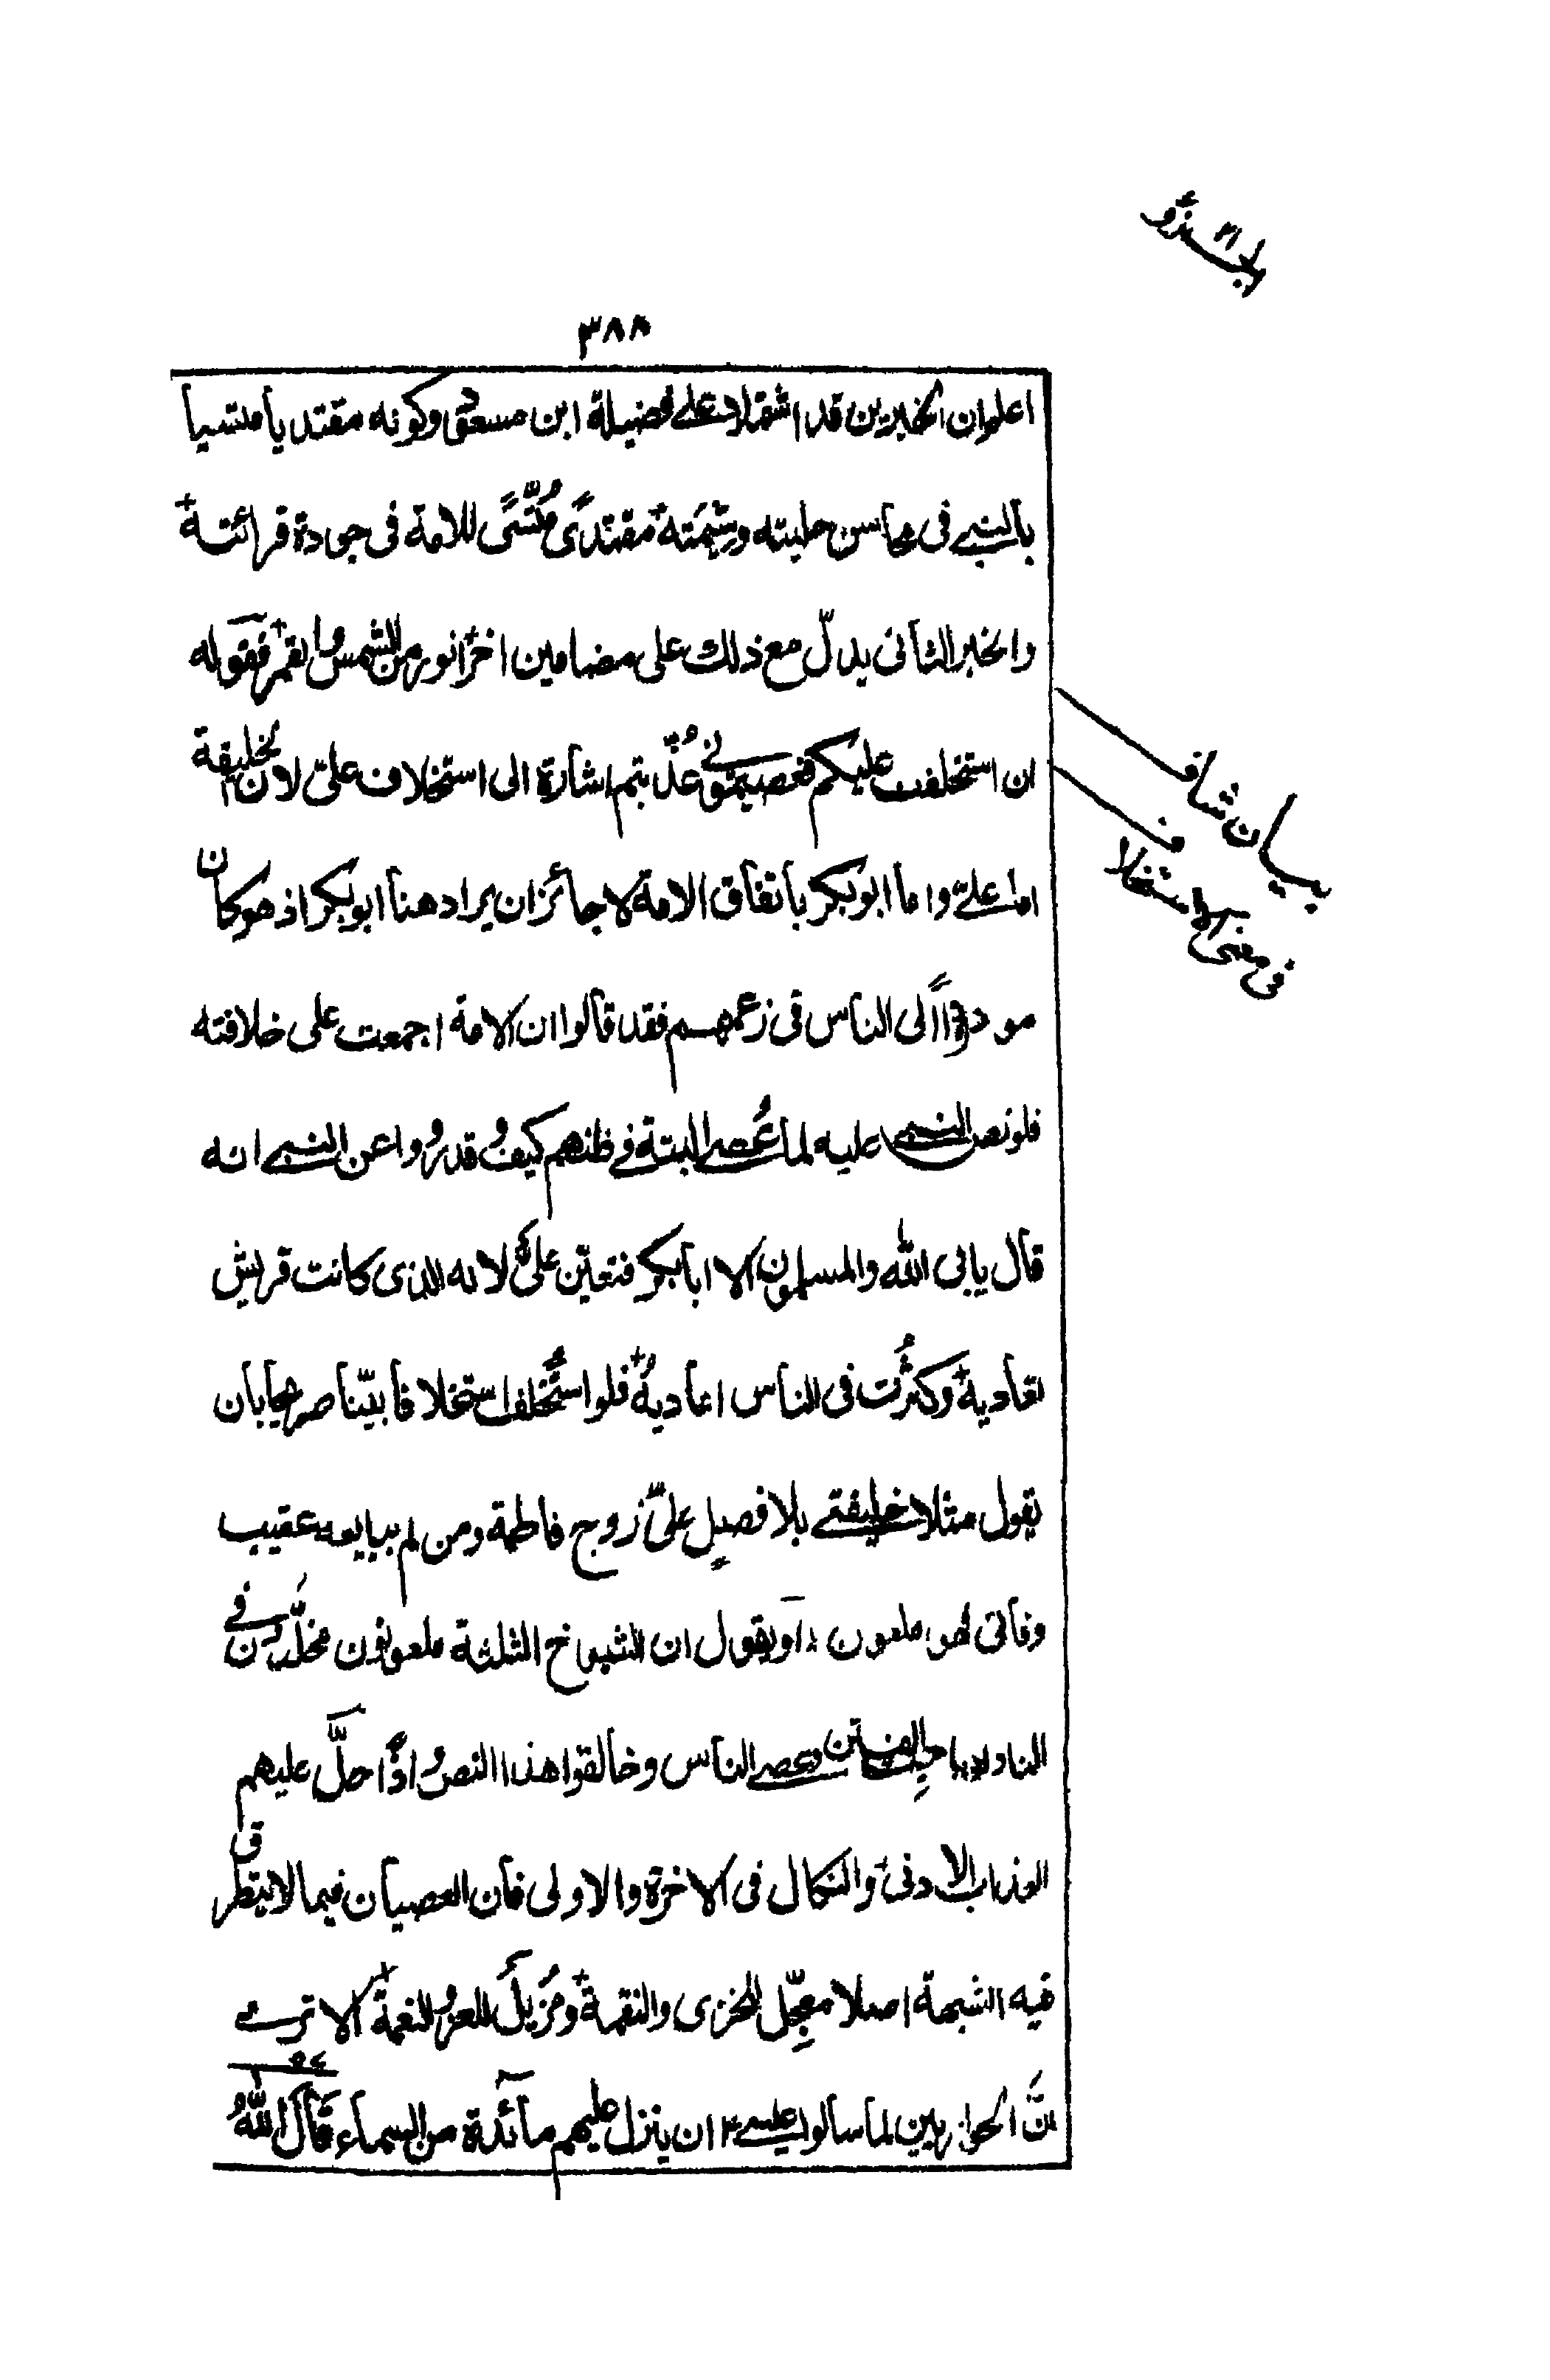 ٣٨٨
اعلم ان الخبرين قد اشتملا على فضيلة ابن مسعود وكونه مقتديا متسيا
بالنبي في محاسن حليته وشيمته مقتدىً للامة في جودة قرائته
والخبر الثاني يدلّ مع ذلك على مضامين اخر انور من الشمس والقمر فقوله
ان استخلفت عليكم فعصيتموني عُذّبتم اشارة الى استخلاف علي لان الخليفة
اما عليّ واما ابوبكر باتفاق الامة لا جائز ان يراد هنا ابوبكر اذ هو كان
الى الناس في زعمهم فقد قالوا ان الامة اجمعت على خلافته
فلو نص النبي عليه لما عُصي البتة في ظنهم كيف وقد رووا عن النبي انه
قال يابى الله والمسلمون الا ابابكر فتعيّن عليّ لانه الذي كانت قريش
تعاديه وكثُرت في الناس اعاديه فلو استُخلف استخلافا بيّنا صريحا بان
يقول مثلا خليفتي بلا فصلٍ عليّ زوج فاطمة ومن لم يبايعه عقيب
وفاتي فهو ملعون او يقول ان الشيوخ الثلثة ملعونون مخلّدون في
النار الفتن وعصى الناس وخالفوا هذا النص اذًا حلّ عليهم
العذاب الادنى والنكال في الاخرة والاولى فان العصيان فيما لا يتطرق
فيه الشبهة اصلا معجّل للخزي والنقمة ومُزيل للعز والنعمة الا ترى
انَّ الحواريين لما سالوا عيسى ان ينزل عليهم مآئدة من السماء قَالَ اللّٰهُ
بيان شاف
في معنى الاستخلاف